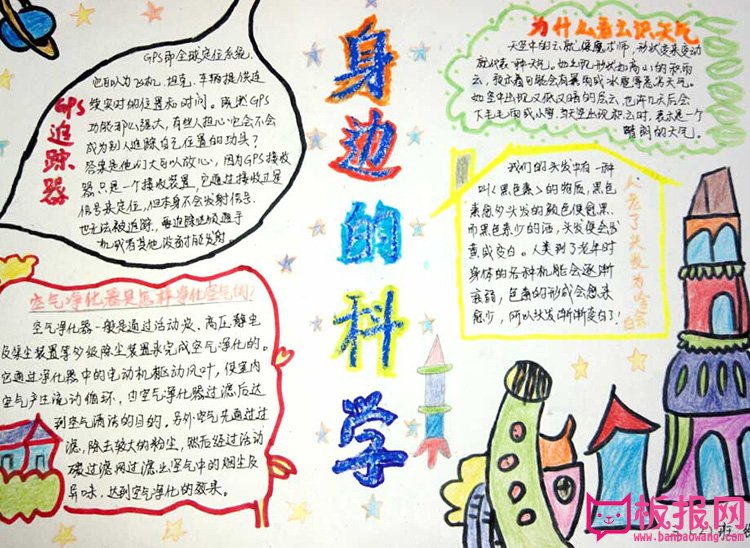 身边的科学
GPS追踪器
GPS即全球定位系统.
它可以为飞机、坦克、车辆提供连
续实时的位置和时间。既然GPS
功能那么强大,有些人担心它会不会
成为别人追踪自己位置的功具?
答案是他们大可以放心,因为GPS接收
器只是一个接收装置,它通过接收卫星
信号来定位,但本身不会发射信号.
也无法被追踪.
机或有其他设备才能发射
空气净化器是怎样净化空气的?
空气净化器一般是通过活动炭、高压静电
及集尘装置等多级除尘装置来完成空气净化的。
它通过净化器中的电动机驱动风叶,使室内
空气产生流动循环,由空气净化器过滤后达
到空气清洁的目的。另外空气先通过过
滤,除去较大的粉尘,然后经过活动
碳过滤网过滤出空气中的烟尘及
异味,达到空气净化的效果。
为什么看云识天气
天空中的云就像魔术师,形状变来变动
就代表一种天气。
下毛毛雨或小雪.当天空出现积云时,表示是一个
晴朗的天气。
人老了头发为啥会白
我们的头发中有一种
叫《黑色素》的物质,黑色
素愈多头发的颜色便愈黑.
而黑色素少的话,头发便会发
黄或变白。人类到了老年时
身体的各种机能会逐渐
衰弱,色素的形成会愈来
愈少,所以头发渐渐变白了!
板报网
www.banbaowang.com